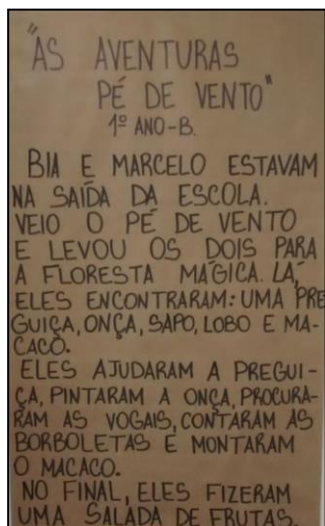 "AS AVENTURAS
PÉ DE VENTO"
1º ANO-B.
BIA E MARCELO ESTAVAM
NA SAÍDA DA ESCOLA.
VEIO O PÉ DE VENTO
E LEVOU OS DOIS PARA
A FLORESTA MÁGICA. LÁ,
ELES ENCONTRARAM: UMA PRE
GUIÇA, ONÇA, SAPO, LOBO E MA-
CACO.
ELES AJUDARAM A PREGUI-
ÇA, PINTARAM A ONÇA, PROCURA-
RAM AS VOGAIS, CONTARAM AS
BORBOLETAS E MONTARAM
O MACACO.
NO FINAL, ELES FIZERAM
UMA SALADA DE FRUTAS.